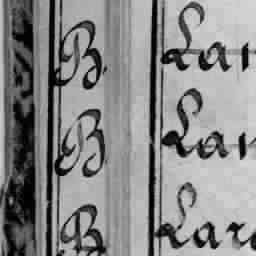 B. Lan
B Lan
B Lar